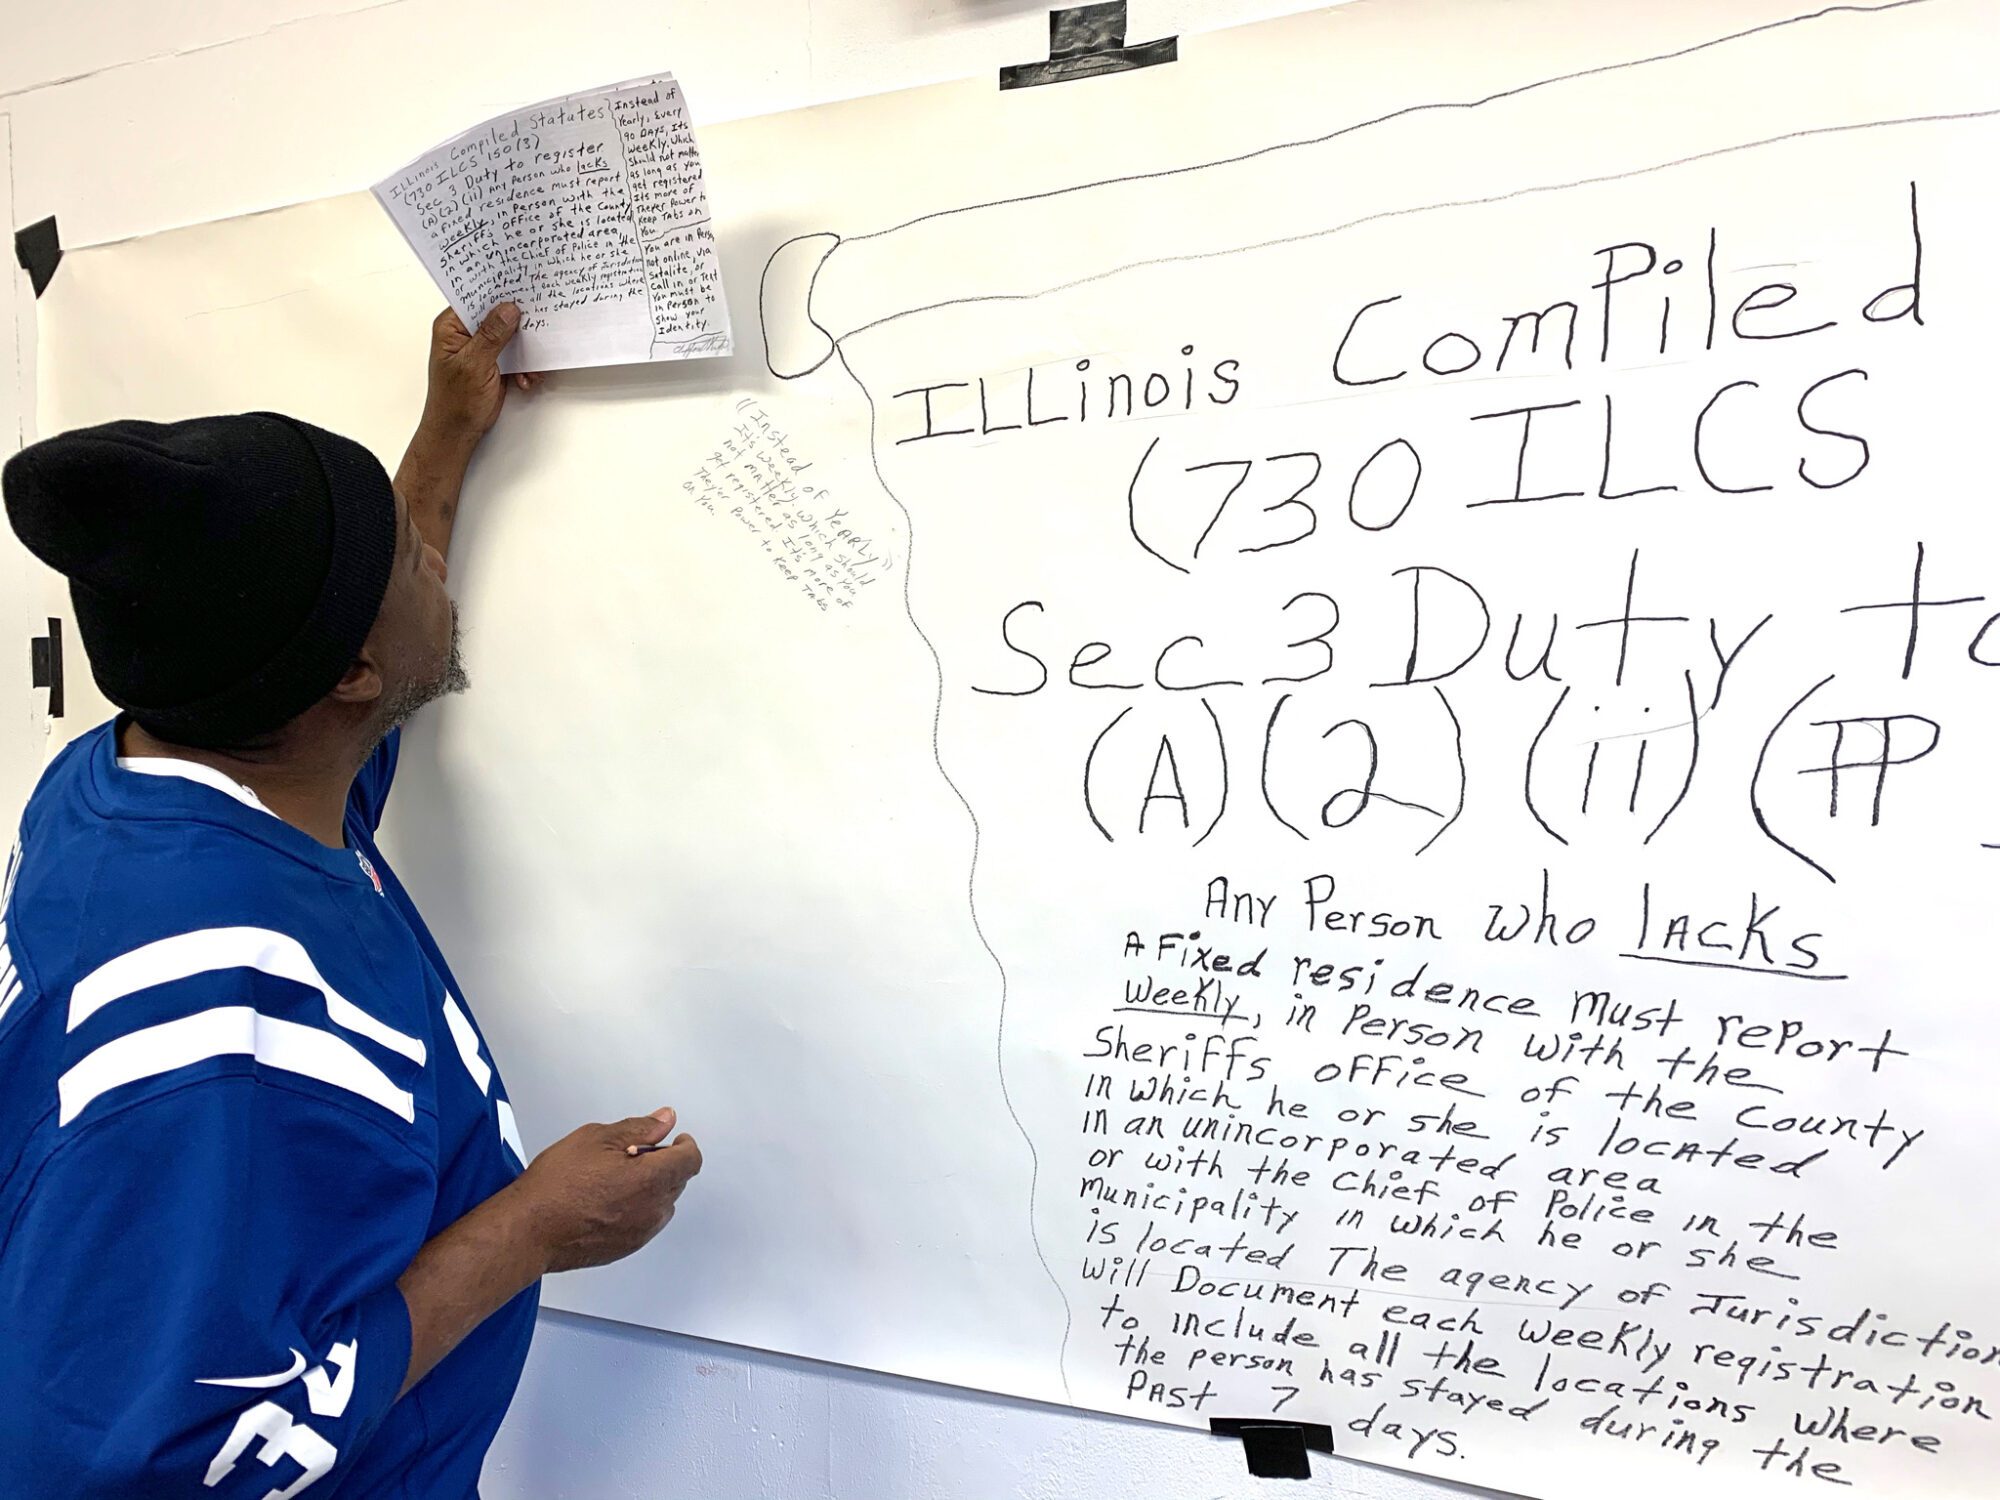 ILLinois Compiled Statutes
(730 ILCS 150(3)
Sec 3 Duty to register
(A)(2)(ii) Any Person who lacks
a fixed residence must report
weekly, in Person with the
Sheriffs office of the County
in which he or she is located
in an unincorporated area,
or with the Chief of Police in the
Municipality in which he or she
is located The agency of Jurisdiction
will Document each weekly registration
all the locations where
has stayed during the
days.
Instead of
Yearly, Every
90 DAYS, Its
weekly. Which
should not matter
as long as you
get registered
Its more of
Theyer Power to
Keep Tabs on
You.
You are in Person
not online, via
Satalite, or
Call in or Text
You must be
in Person to
Show your
Identity.
"Instead of YEARLY"
It's weekly. Which should
not matter as long as You
get registered. It's more of
They'er Power to Keep TABS
on You.
ILLinois Compiled
(730 ILCS
Sec 3 Duty to
(A) (2) (ii) (
Any Person who lACKS
A Fixed residence Must report
weekly, in Person with the
Sheriffs office of the County
in which he or she is located
in an unincorporated area
or with the Chief of Police in the
Municipality in which he or she
is located The agency of Jurisdiction
will Document each weekly registration
to include all the locations where
the person has stayed during the
PAst 7 days.
34